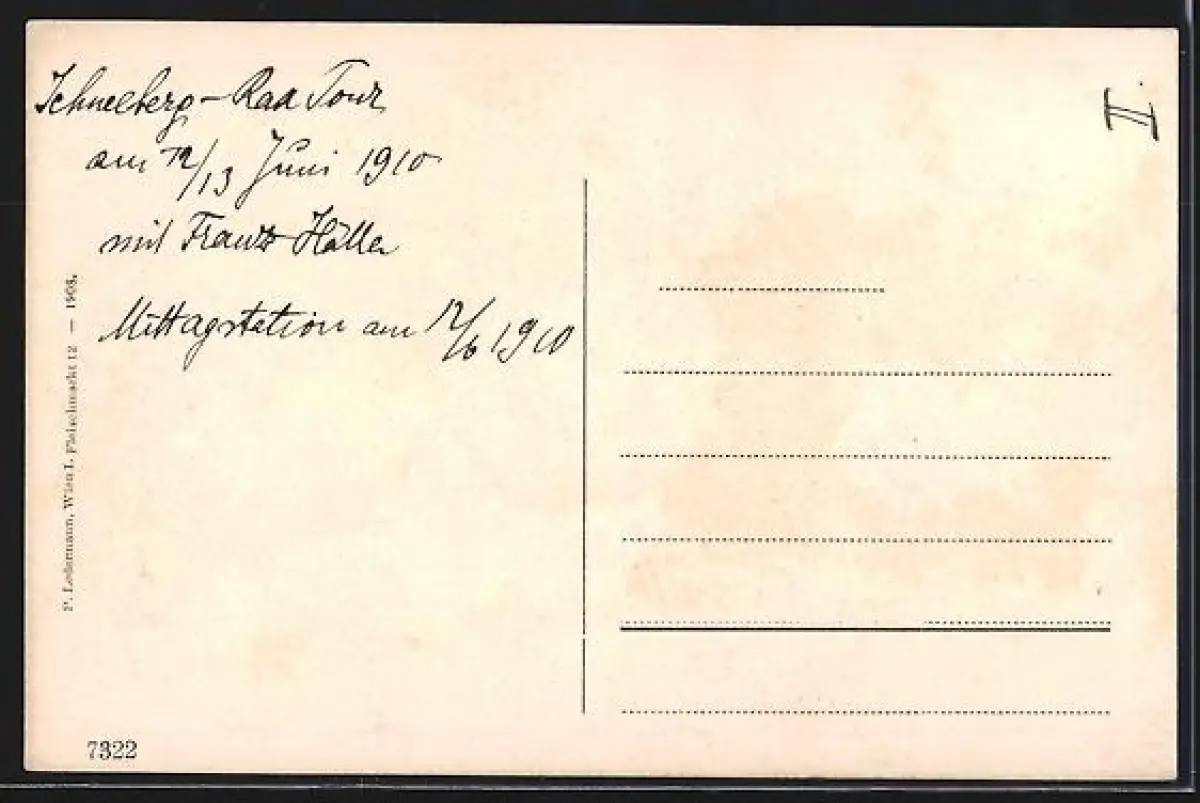 Schneeberg – Rad Tour
am 12/13 Juni 1910
mit Frantz Höller
Mittagstation am 12/6 1910
II.
P. Ledermann, Wien I. Fleischmarkt 12 — 1908.
7322